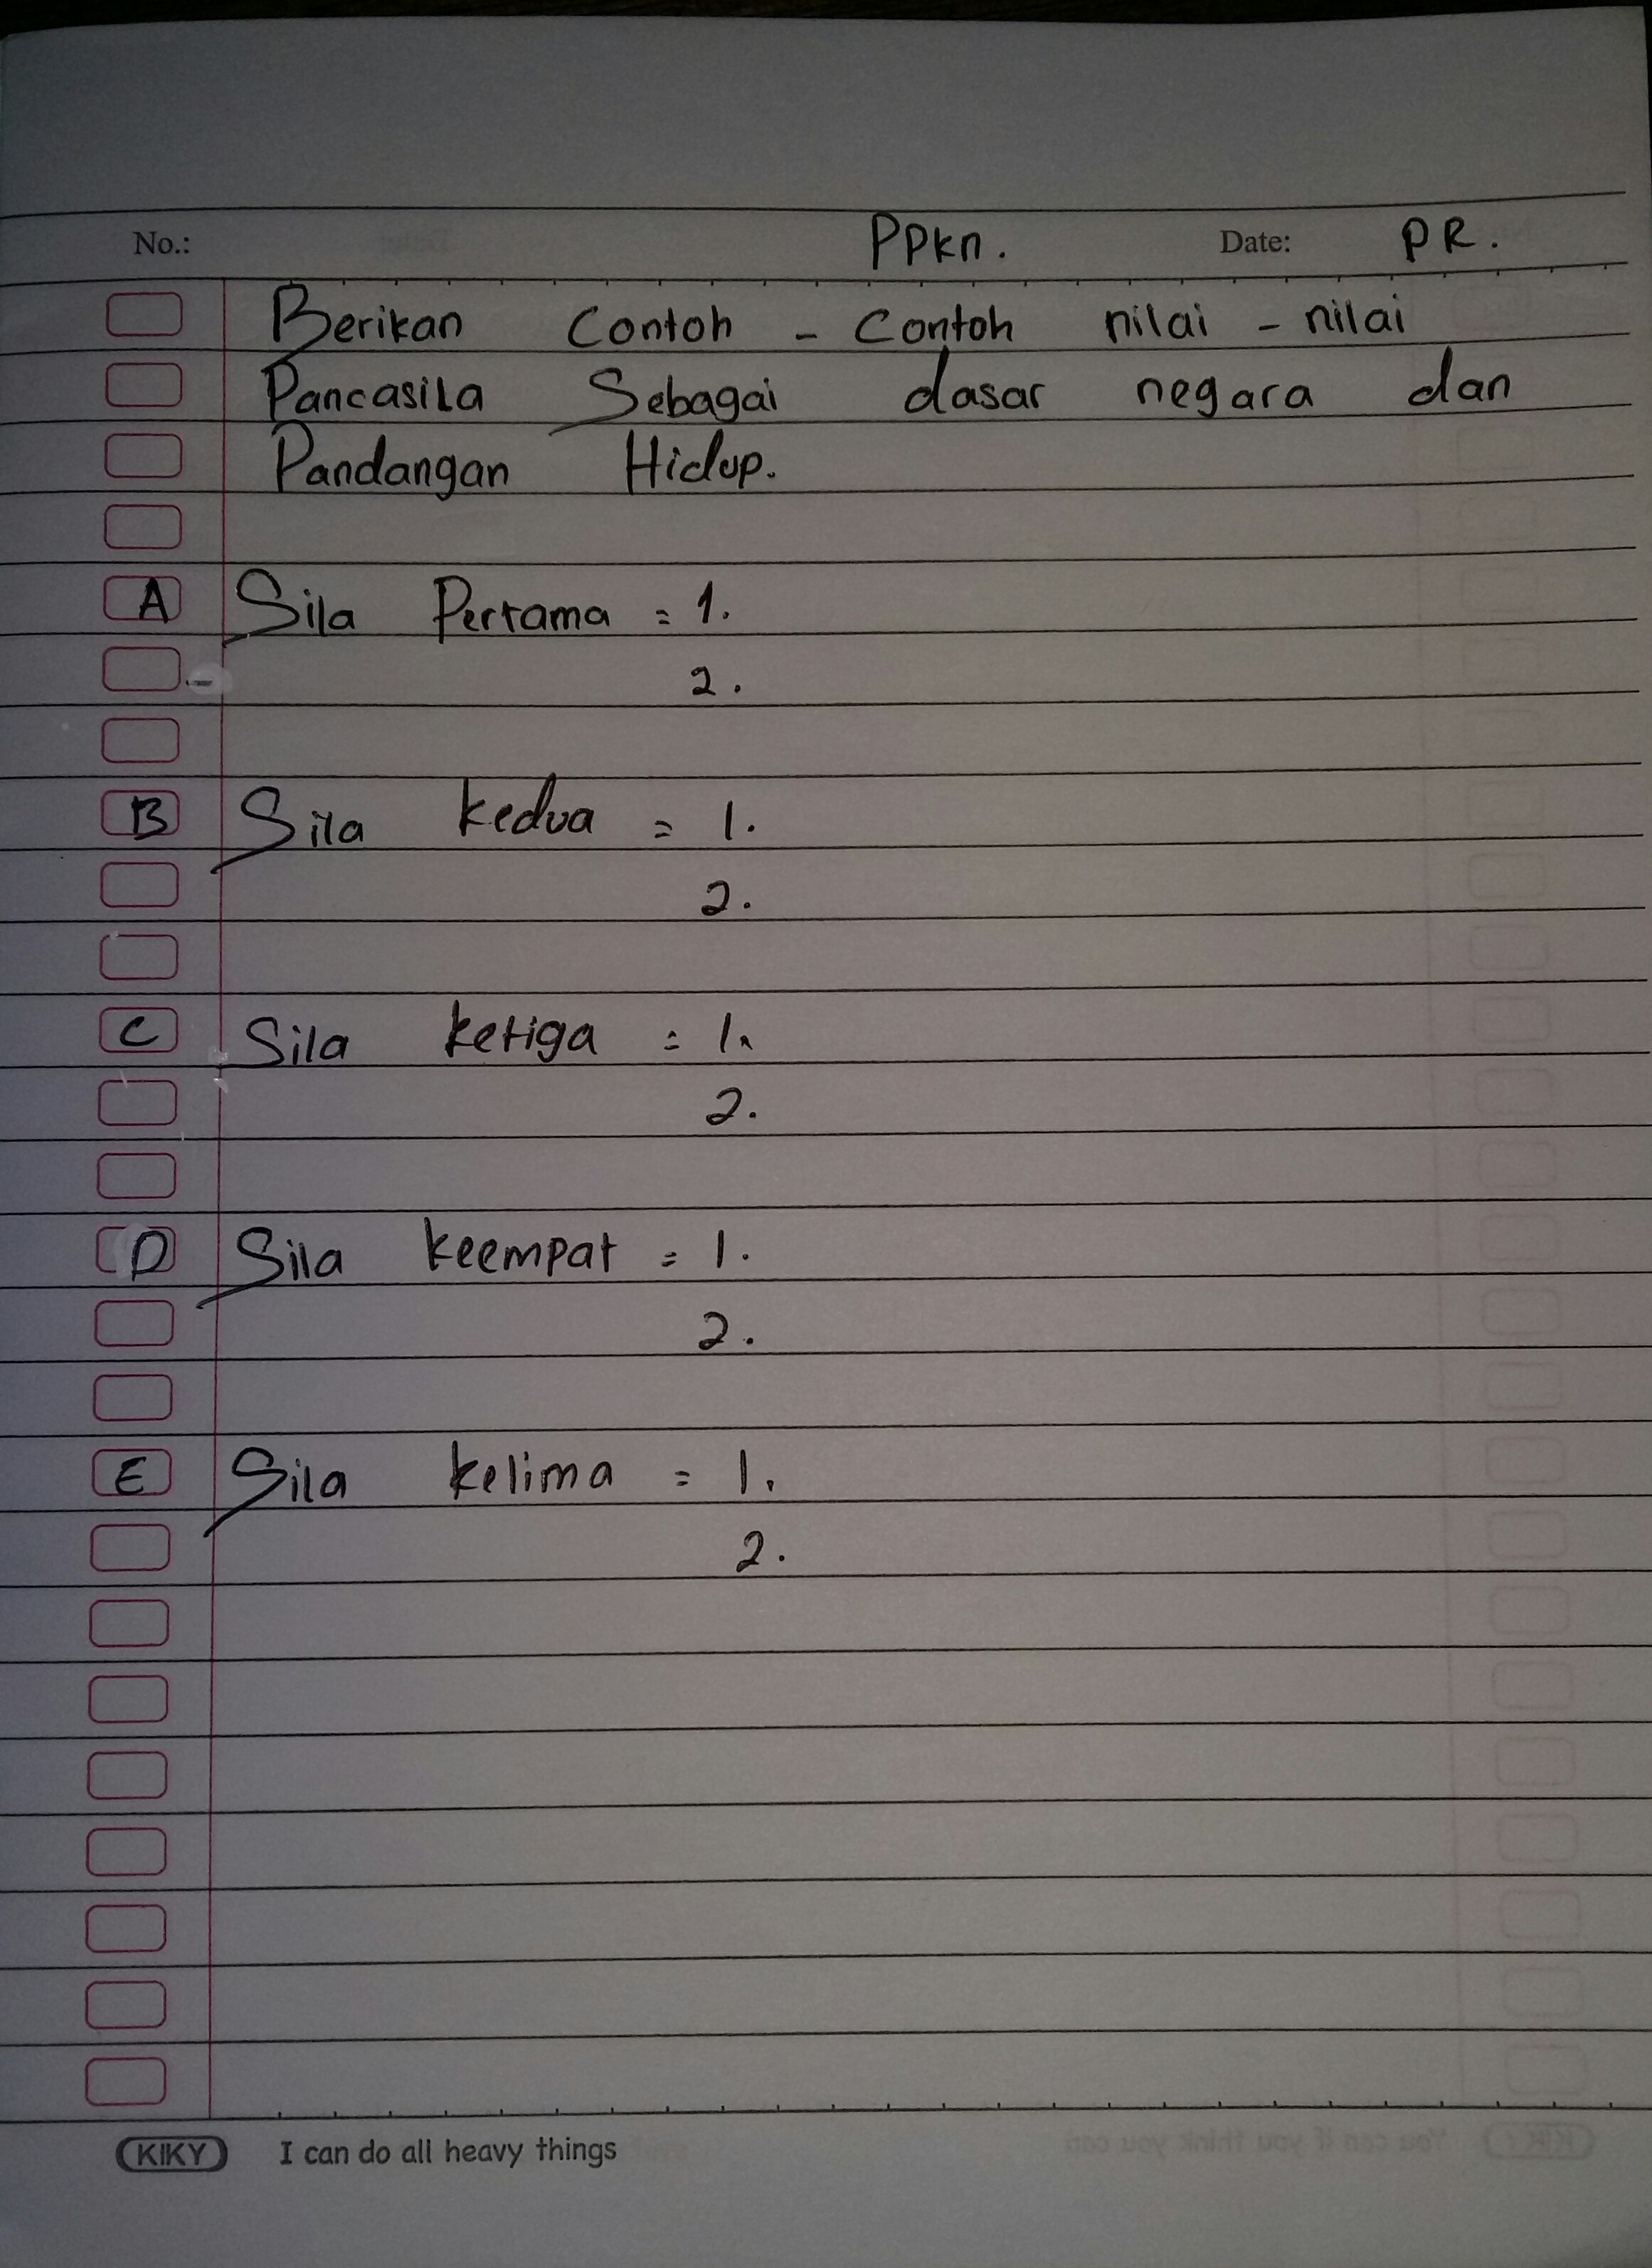 No.: PPkn. Date: PR.
Berikan Contoh - Contoh nilai - nilai
Pancasila Sebagai dasar negara dan
Pandangan Hidup.
A Sila Pertama = 1.
2.
B Sila kedua = 1.
2.
C Sila ketiga = 1.
2.
D Sila keempat = 1.
2.
E Sila kelima = 1.
2.
KIKY I can do all heavy things